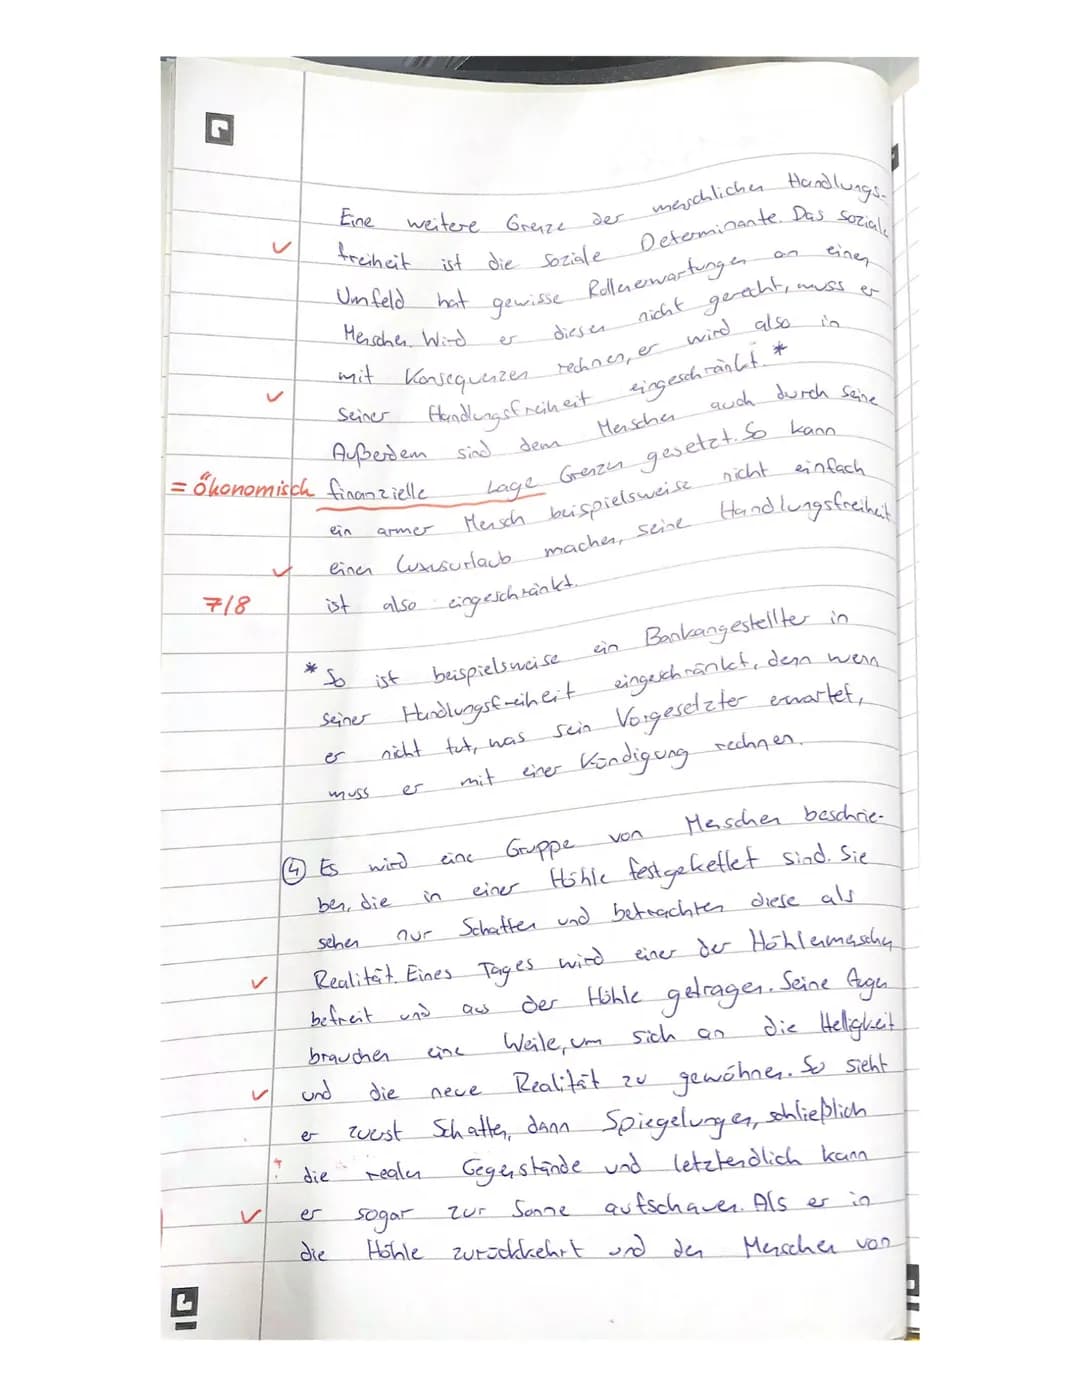 Eine weitere Grenze der menschlichen Handlungs-
freiheit ist die soziale Determinante. Das soziale
Umfeld hat gewisse Rollenerwartungen an einen
Menschen. Wird er diesen nicht gerecht, muss er
mit Konsequenzen rechnen, er wird also in
seiner Handlungsfreiheit eingeschränkt. *
Außerdem sind dem Menschen auch durch seine
= ökonomisch finanzielle Lage Grenzen gesetzt. So kann
ein armer Mensch beispielsweise nicht einfach
einen Luxusurlaub machen, seine Handlungsfreiheit
7/8 ist also eingeschränkt.
* So ist beispielsweise ein Bankangestellter in
seiner Handlungsfreiheit eingeschränkt, denn wenn
er nicht tut, was sein Vorgesetzter erwartet,
muss er mit einer Kündigung rechnen.
④ Es wird eine Gruppe von Menschen beschrie-
ben, die in einer Höhle festgekettet sind. Sie
sehen nur Schatten und betrachten diese als
Realität. Eines Tages wird einer der Höhlenmenschen
befreit und aus der Höhle getragen. Seine Augen
brauchen eine Weile, um sich an die Helligkeit
und die neue Realität zu gewöhnen. So sieht
er zuerst Schatten, dann Spiegelungen, schließlich
die realen Gegenstände und letztendlich kann
er sogar zur Sonne aufschauen. Als er in
die Höhle zurückkehrt und den Menschen von